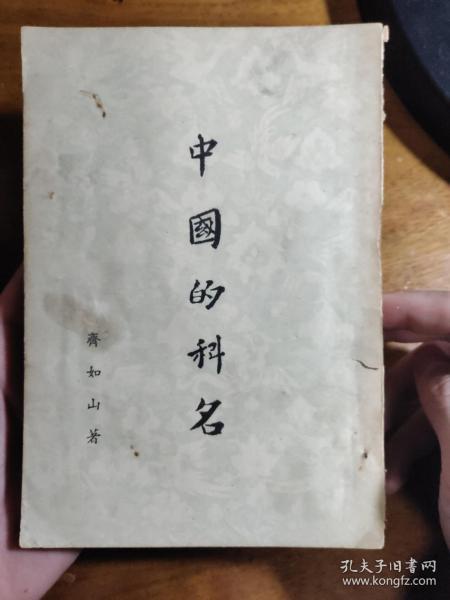 中國的科名
齊如山著
孔夫子旧书网
www.kongfz.com